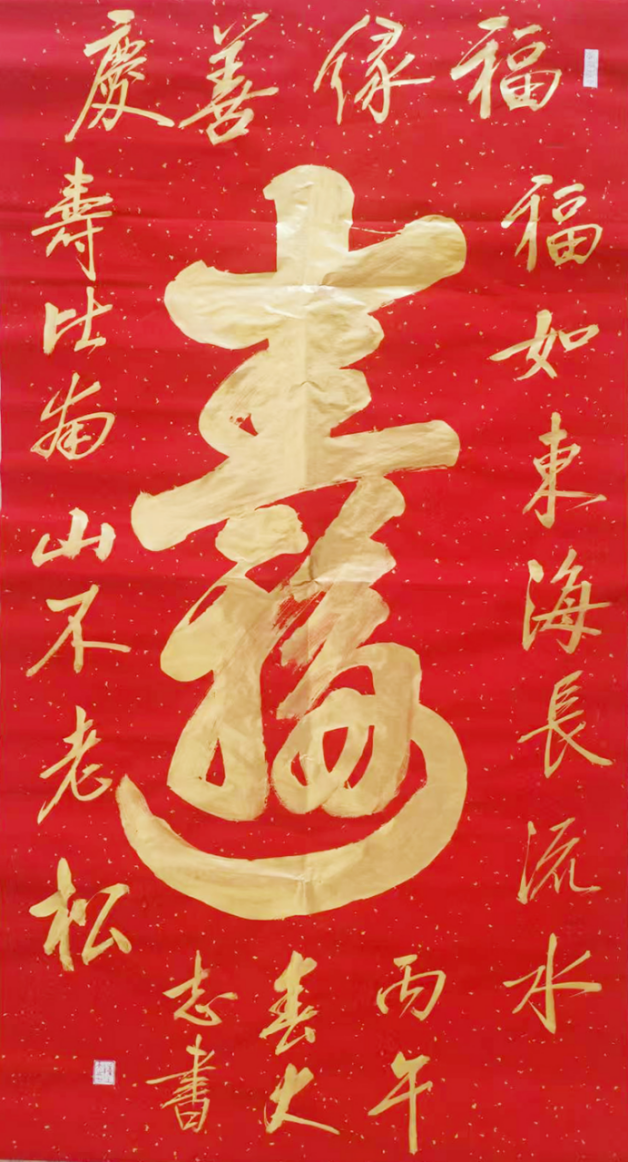 福緣善慶
福如東海長流水
壽
壽比南山不老松
丙午
春大
志書